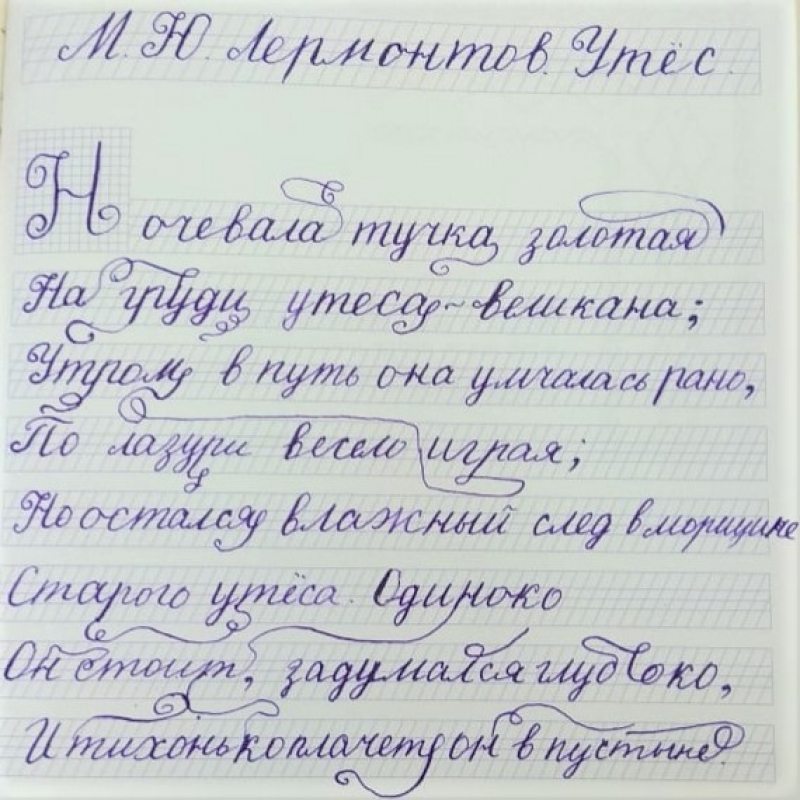 М. Ю. Лермонтов. Утёс.
Ночевала тучка золотая
На груди утеса-великана;
Утром в путь она умчалась рано,
По лазури весело играя;
Но остался влажный след в морщине
Старого утёса. Одиноко
Он стоит, задумался глубоко,
И тихонько плачет он в пустыне.